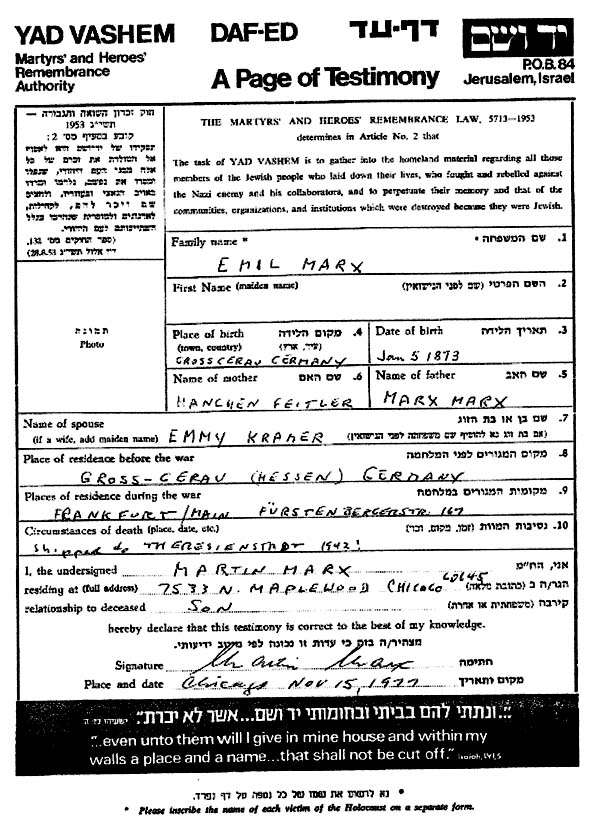 YAD VASHEM DAF-ED דף-עד יד ושם
Martyrs' and Heroes'
Remembrance
Authority
A Page of Testimony
P.O.B. 84
Jerusalem, Israel
חוק זכרון השואה והגבורה —
תשי"ג 1953
קובע בסעיף מס' 2:
THE MARTYRS' AND HEROES' REMEMBRANCE LAW, 5713—1953
determines in Article No. 2 that
The task of YAD VASHEM is to gather into the homeland material regarding all those
members of the Jewish people who laid down their lives, who fought and rebelled against
the Nazi enemy and his collaborators, and to perpetuate their memory and that of the
communities, organizations, and institutions which were destroyed because they were Jewish.
(ספר החוקים מס' 132,
Family name * 1. שם המשפחה *
EMIL MARX
First Name (maiden name) 2. השם הפרטי (שם לפני הנישואין)
תמונה
Photo
Place of birth 4. מקום הלידה
(town, country) (עיר, ארץ)
GROSSGERAU GERMANY
Date of birth 3. תאריך הלידה
Jan 5 1873
Name of mother 6. שם האם
HANCHEN FEITLER
Name of father 5. שם האב
MARX MARX
Name of spouse 7. שם בן או בת הזוג
(if a wife, add maiden name) EMMY KRAMER
Place of residence before the war 8. מקום המגורים לפני המלחמה
GROSS-GERAU (HESSEN) GERMANY
Places of residence during the war 9. מקומות המגורים במלחמה
FRANKFURT/MAIN FÜRSTENBERGERSTR. 167
Circumstances of death (place, date, etc.) 10. נסיבות המוות (זמן, מקום, וכו')
Shipped to THERESIENSTADT 1942!
I, the undersigned MARTIN MARX אני, הח"מ
residing at (full address) 7533 N. MAPLEWOOD CHICAGO 60645 הגר/ה ב (כתובת מלאה)
relationship to deceased SON קירבה (משפחתית או אחרת)
hereby declare that this testimony is correct to the best of my knowledge.
מצהיר/ה בזה כי עדות זו נכונה לפי מיטב ידיעותי.
Signature Martin Marx חתימה
Place and date Chicago NOV 15, 1977 מקום ותאריך
"...ונתתי להם בביתי ובחומותי יד ושם...אשר לא יכרת".
"...even unto them will I give in mine house and within my
walls a place and a name...that shall not be cut off." Isaiah, LVI,5
* נא לרשום את שמו של כל נספה על דף נפרד.
* Please inscribe the name of each victim of the Holocaust on a separate form.